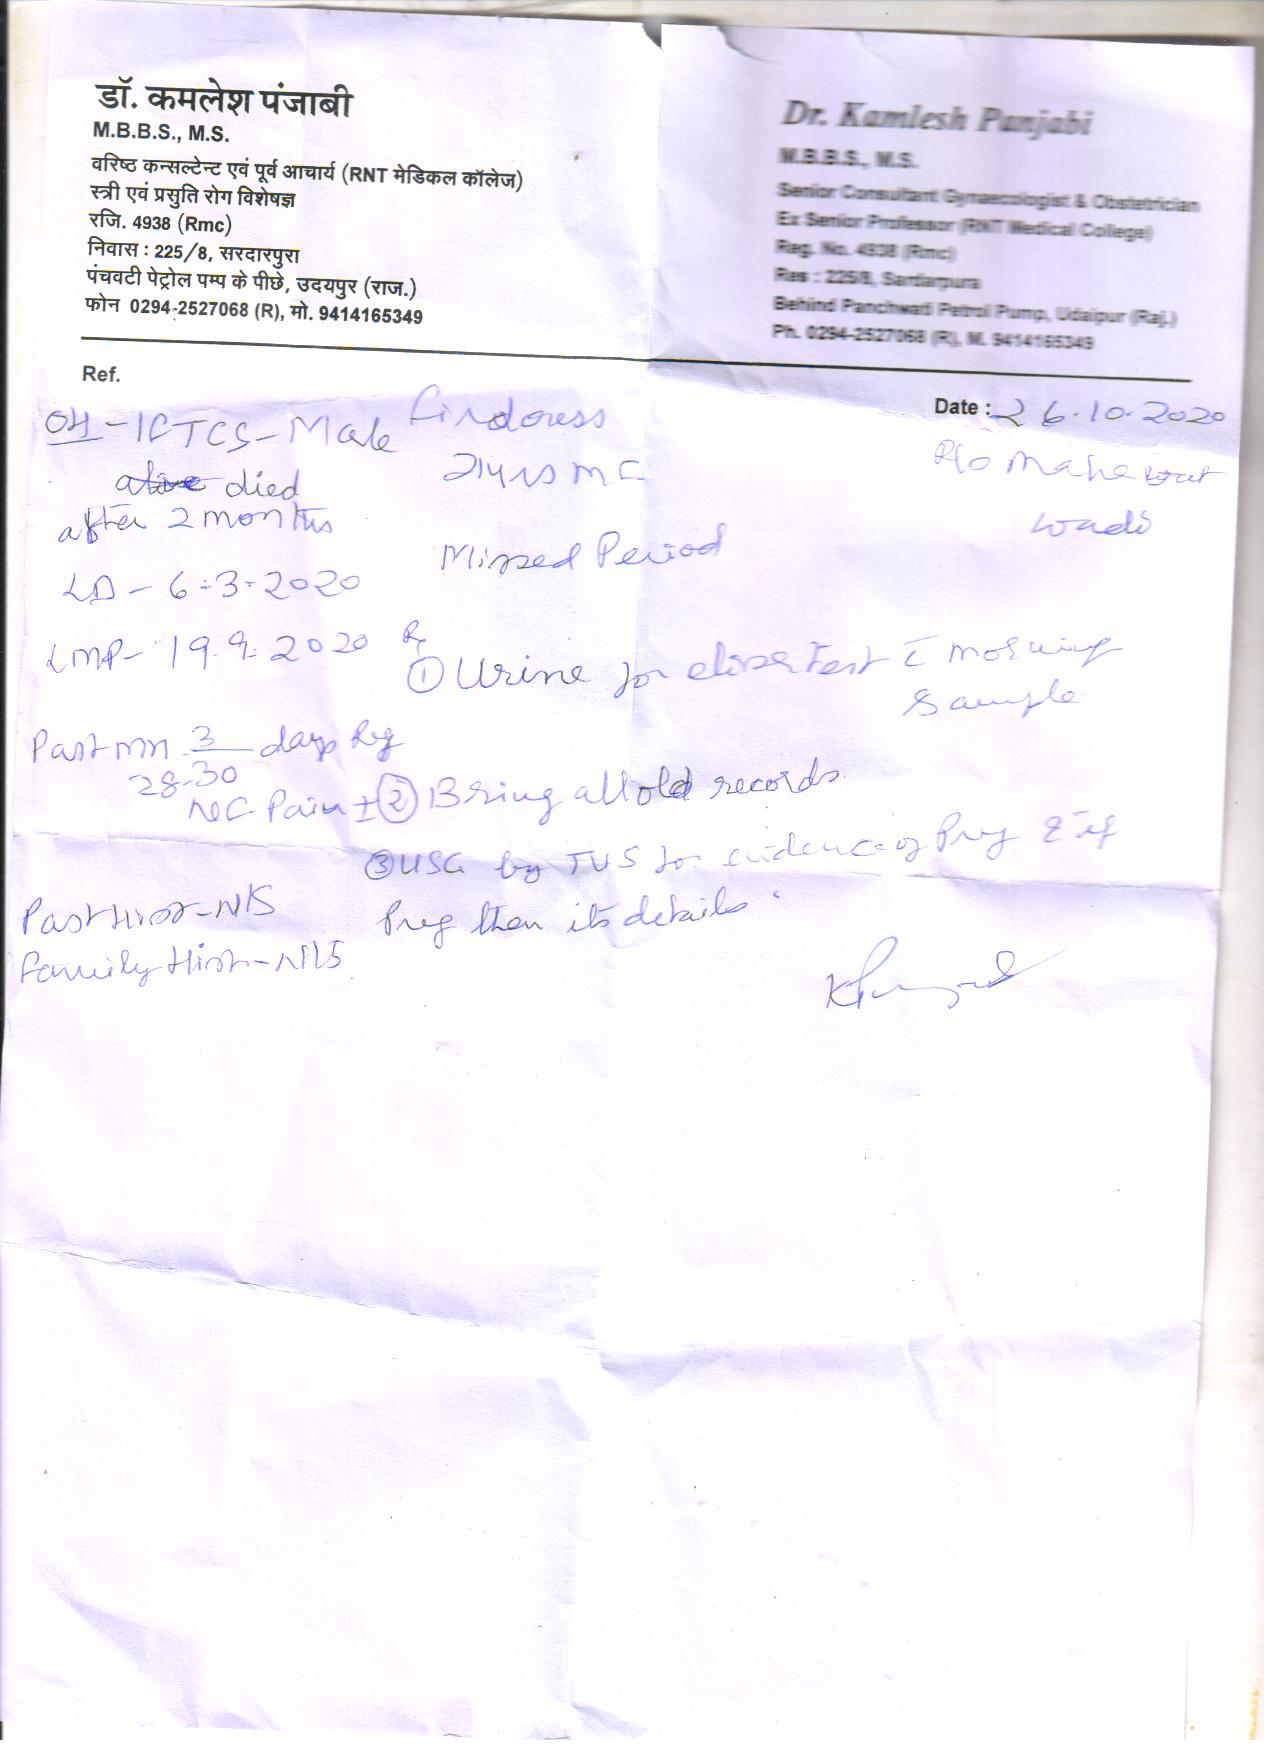 डॉ. कमलेश पंजाबी
M.B.B.S., M.S.
वरिष्ठ कन्सल्टेन्ट एवं पूर्व आचार्य (RNT मेडिकल कॉलेज)
स्त्री एवं प्रसुति रोग विशेषज्ञ
रजि. 4938 (Rmc)
निवास : 225/8, सरदारपुरा
पंचवटी पेट्रोल पम्प के पीछे, उदयपुर (राज.)
फोन 0294-2527068 (R), मो. 9414165349
Dr. Kamlesh Punjabi
M.B.B.S., M.S.
Senior Consultant Gynaecologist & Obstetrician
Ex Senior Professor (RNT Medical College)
Reg. No. 4938 (Rmc)
Res : 225/8, Sardarpura
Behind Panchwati Petrol Pump, Udaipur (Raj.)
Ph. 0294-2527068 (R), M. 9414165349
Ref.
Date : 26.10.2020
OH - 1CTCS - Male
died
after 2 months
LD - 6.3.2020
LMP - 19.9.2020
Past MH 3/28-30 days Reg
Pain ±
Past Hist - NIS
Family Hist - NIS
Firdouss
21yrs MF
R/o
wadi
Missed Period
Rx
① Urine for elisa test c̄ morning
sample
② Bring all old records
③ USG by TVS for evidence of Preg & if
Preg then its details